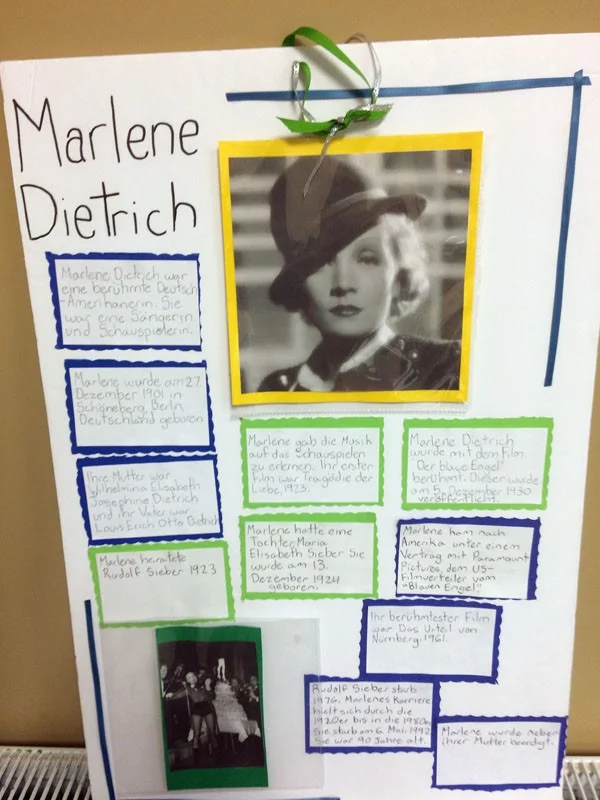 Marlene
Dietrich
Marlene Dietrich war
eine berühmte Deutsch
-Amerikanerin. Sie
war eine Sängerin
und Schauspielerin.
Marlene wurde am 27.
Dezember 1901 in
Schöneberg, Berlin
Deutschland geboren
Ihre Mutter war
Wilhelmina Elisabeth
Josephine Dietrich
und ihr Vater war
Louis Erich Otto Dietrich
Marlene heiratete
Rudolf Sieber 1923
Marlene gab die Musik
auf das Schauspielen
zu erlernen. Ihr erster
Film war Tragödie der
Liebe, 1923.
Marlene hatte eine
Tochter Maria
Elisabeth Sieber Sie
wurde am 13.
Dezember 1924
geboren.
Marlene Dietrich
wurde mit dem Film.
"Der blaue Engel"
berühmt. Dieser wurde
am 5. Dezember 1930
veröffentlicht.
Marlene kam nach
Amerika unter einem
Vertrag mit Paramount
Pictures, dem US-
Filmverteiler vom
"Blauen Engel"
Ihr berühmtester Film
war Das Urteil von
Nürnberg. 1961.
Rudolf Sieber starb
1976. Marlenes Karriere
hielt sich durch die
1920er bis in die 1980er
Sie starb am 6. Mai, 1992
Sie war 90 Jahre alt.
Marlene wurde neben
ihrer Mutter beerdigt.